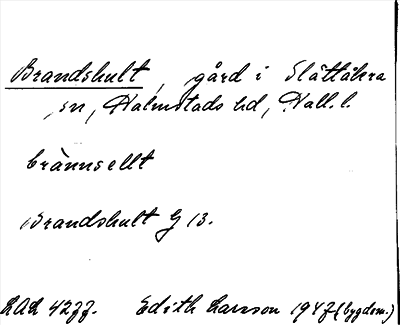 Brandshult, gård i Slättåkra
sn, Halmstads hd, Hall. l.
brännsellt
Brandshult G 13.
LAL 4277. Edith Larsson 1947 (bygdem.)